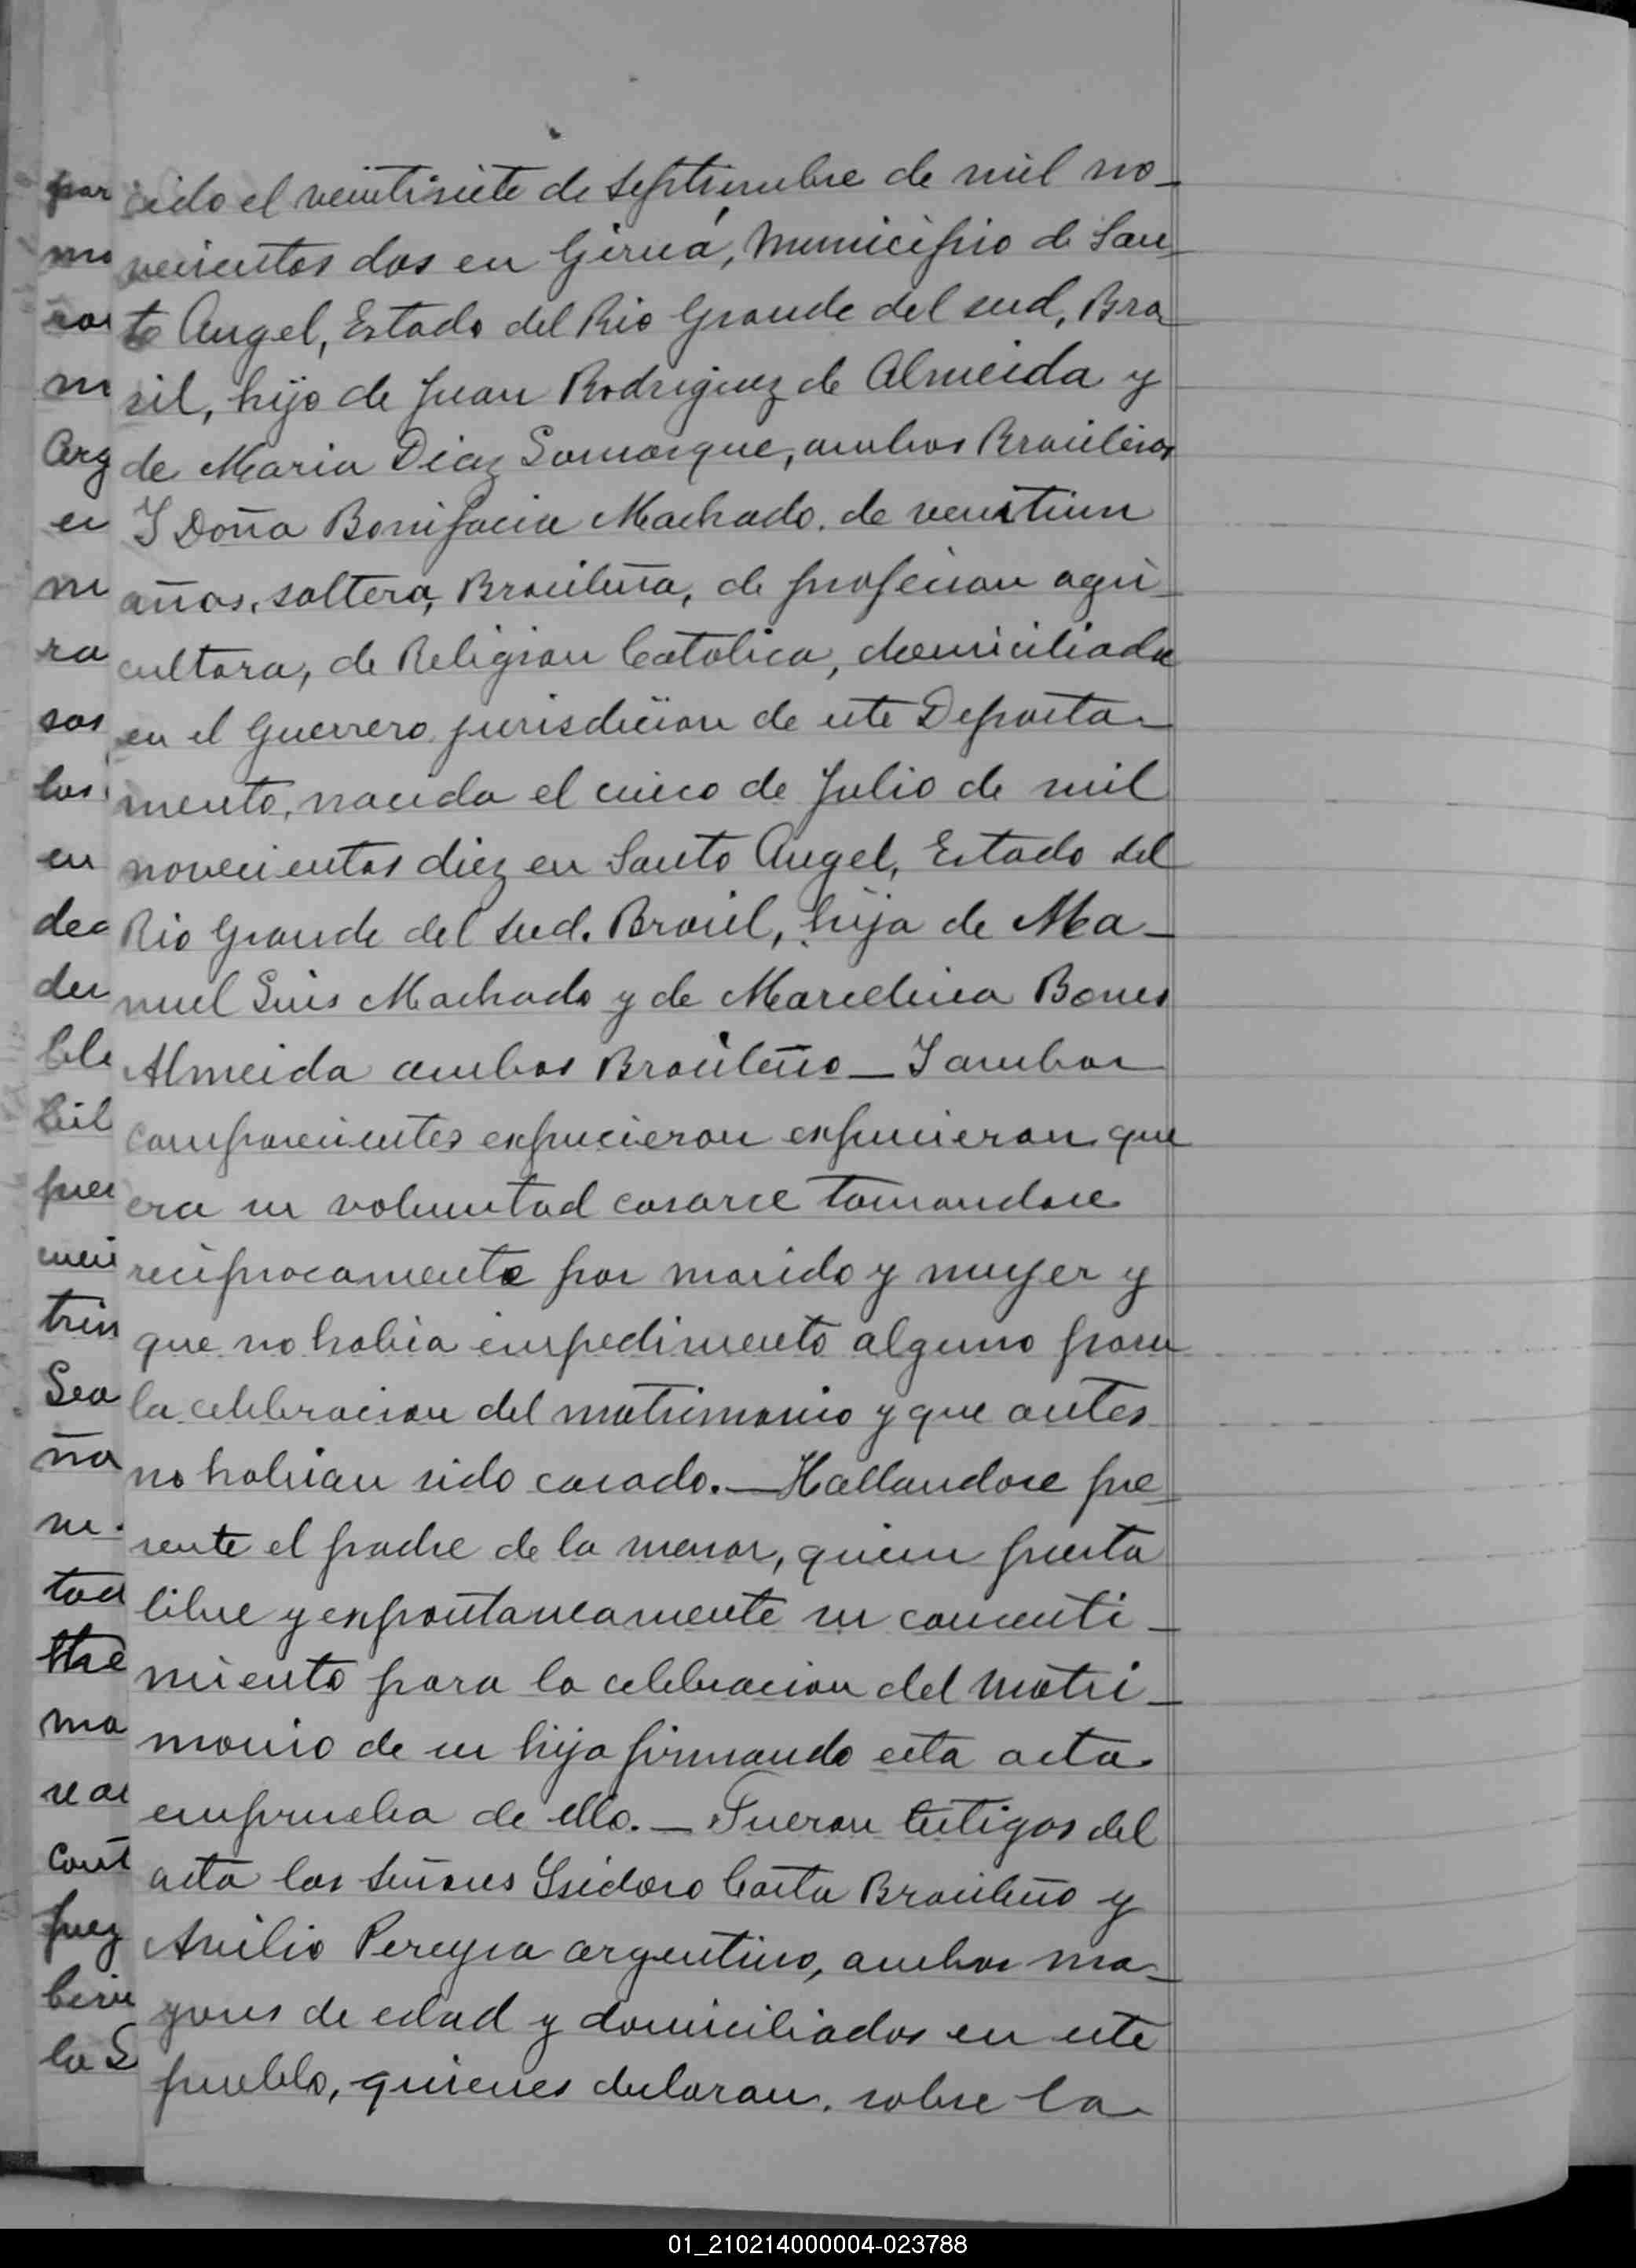 cido el veintisiete de septiembre de mil no-
vecientos dos en Giruá, Municipio de San-
to Angel, Estado del Rio Grande del sud, Bra
sil, hijo de Juan Rodriguez de Almeida y
de Maria Diaz Somarque, ambos Brasileños
Y Doña Bonifacia Machado. de veintiun
años, soltera, Brasileña, de profesion agri-
cultora, de Religion Catolica, domiciliada
en el Guerrero jurisdiccion de este Departa-
mento, nacida el cinco de Julio de mil
novecientos diez en Santo Angel, Estado del
Rio Grande del sud. Brasil, hija de Ma-
nuel Luis Machado y de Marcelina Bones
Almeida ambos Brasileño — Y ambos
comparecientes expucieron expucieron que
era su voluntad casarce tomandose
reciprocamente por marido y mujer y
que no habia impedimento alguno para
la celebracion del matrimonio y que antes
no habian sido casado. — Hallandose pre-
sente el padre de la menor, quien presta
libre y expontaneamente su consenti-
miento para la celebracion del matri-
monio de su hija firmando esta acta
emprueba de ello. — Fueron testigos del
acta los señores Isidoro Costa Brasileño y
Anilio Pereyra argentino, ambos ma-
yores de edad y domiciliados en este
pueblo, quienes declaran. sobre la
par
mo
ros
m
Arg
en
ra
sos
los
en
dec
der
trin
Sea
ña
tad
ma
se as
cont
Juez
la S
01_210214000004-023788